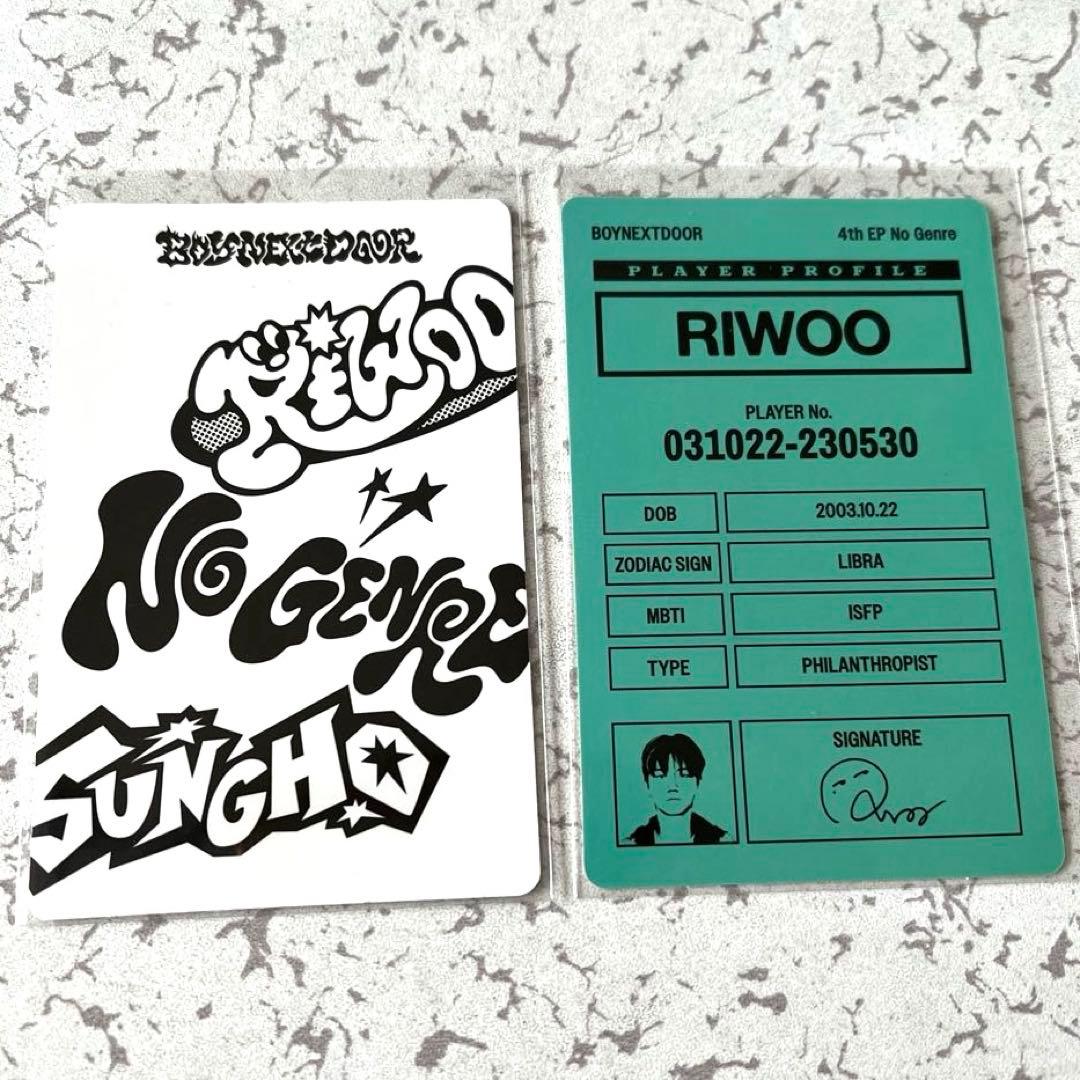 BOYNEXTDOOR
RIWOO
NO GENRE
SUNGHO
BOYNEXTDOOR 4th EP No Genre
PLAYER PROFILE
RIWOO
PLAYER No.
031022-230530
DOB 2003.10.22
ZODIAC SIGN LIBRA
MBTI ISFP
TYPE PHILANTHROPIST
SIGNATURE